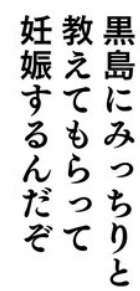 黒島にみっちりと
教えてもらって
妊娠するんだぞ